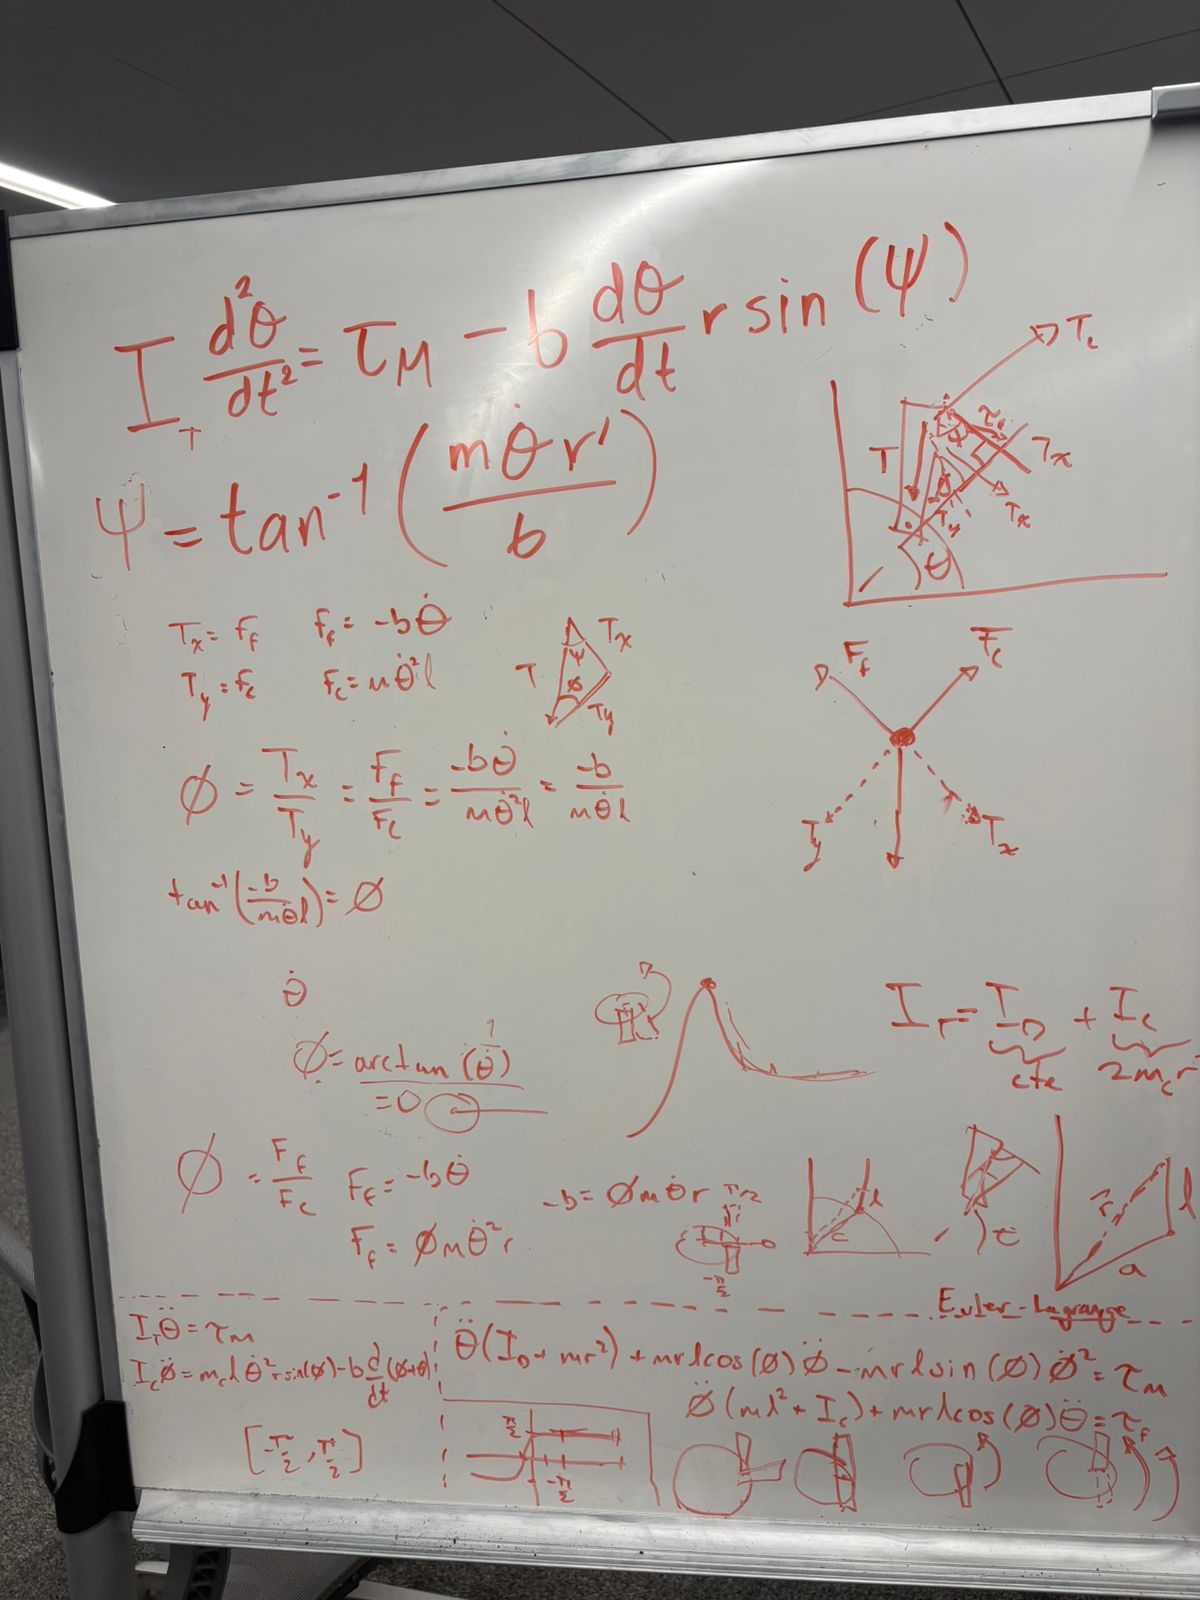 I_T d²θ/dt² = τ_M − b dθ/dt r sin (ψ)
ψ = tan⁻¹ (mθ̇r'/b)
T_c
T
T_x
T_x
T_y
θ
T_x = F_f  F_f = -bθ̇
T_y = F_c  F_c = mθ̇²l
T ψ T_x
ø T_y
F_f F_c
T_y T_x
ø = T_x/T_y = F_f/F_c = -bθ̇/mθ̇²l = -b/mθ̇l
tan⁻¹(-b/mθ̇l) = ø
θ̇
ø = arctan (1/θ̇)
= 0
I_T = I_D + I_c
cte 2m_c r
ø = F_f/F_c  F_f = -bθ̇
F_f = ømθ̇²r
-b = ømθ̇r
π/2
0
-π/2
l
c
r l
a
Euler-Lagrange
I_T θ̈ = τ_M
I_c ø̈ = m_c l θ̇² r sin(ø) − b d/dt (ø+θ)
[-π/2, π/2]
θ̈(I_D + mr²) + mrlcos(ø)ø̈ − mrlsin(ø)ø̇² = τ_M
ø̈(ml² + I_c) + mrlcos(ø)θ̈ = τ_f
π/2
-π/2